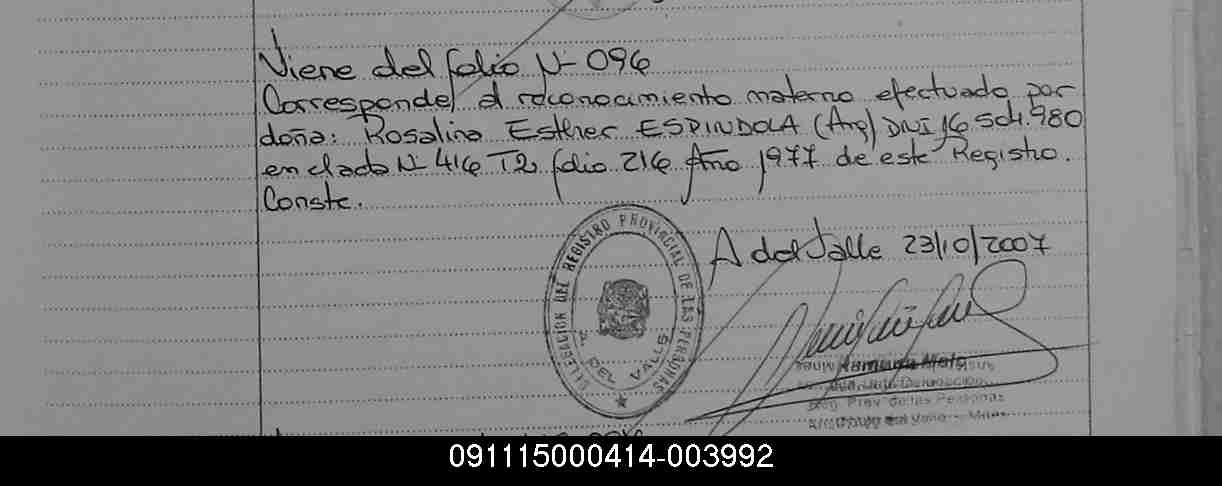 Viene del folio Nº 096
Corresponde al reconocimiento materno efectuado por
doña: Rosalina Esther ESPINDOLA (Arg) DNI 16.504.980
en el acta Nº 416 T2 folio 216 Año 1977 de este Registro.
Conste.
A del Valle 23/10/2007
DELEGACION DEL REGISTRO PROVINCIAL DE LAS PERSONAS
A. DEL VALLE
Ramona
Delegacion
Prov. de las Personas
del Valle
091115000414-003992